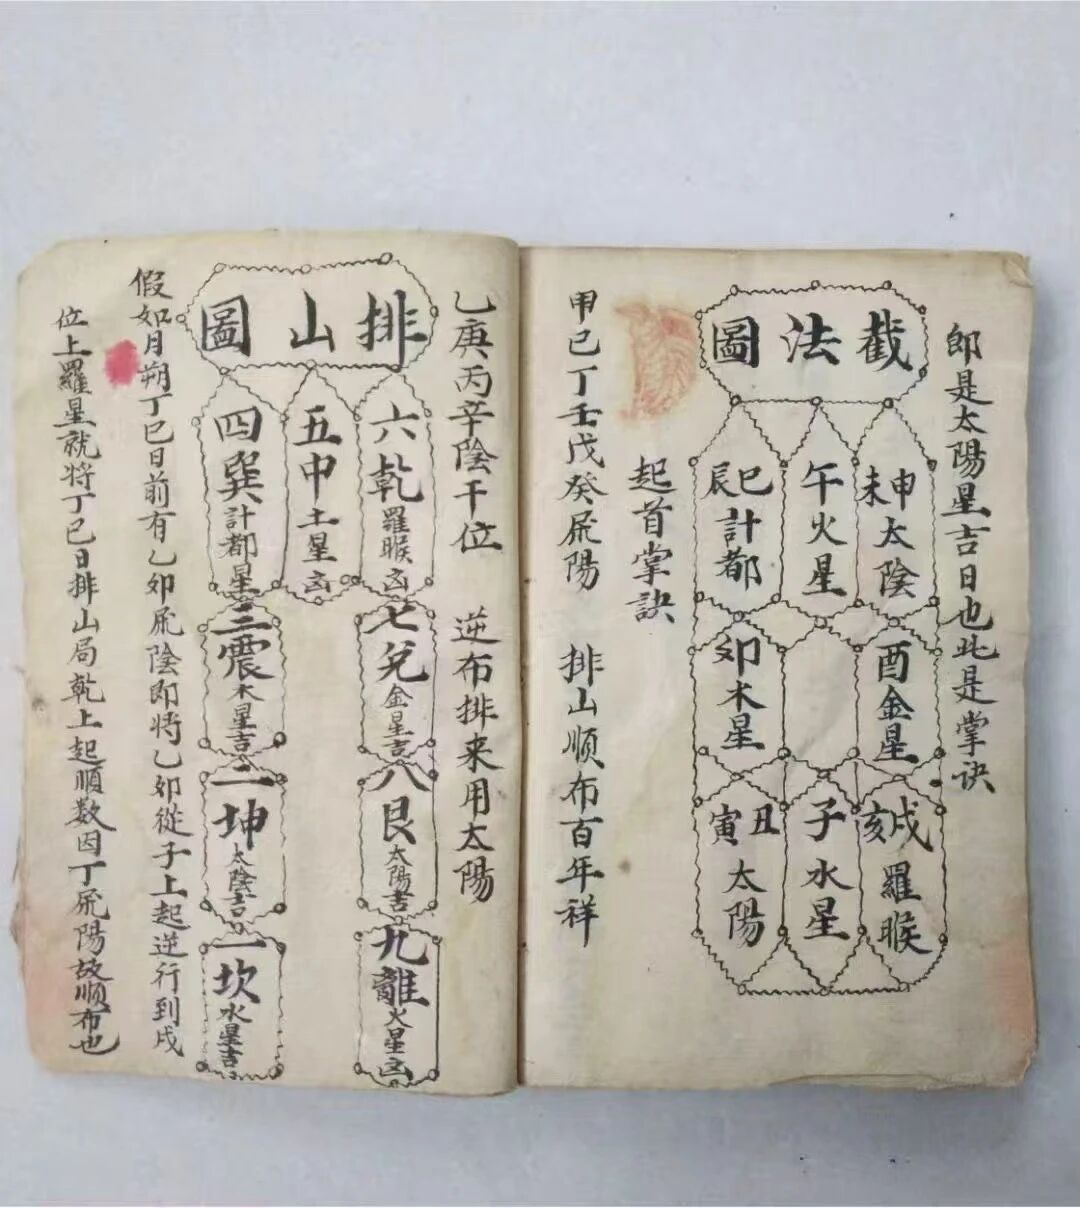 即是太陽星吉日也此是掌訣
截法圖
未申太陰
午火星
辰巳計都
酉金星
卯木星
亥戌羅睺
子水星
寅丑太陽
起首掌訣
甲己丁壬戊癸属陽 排山順布百年祥
乙庚丙辛陰干位 逆布排来用太陽
排山圖
六乾羅睺凶
五中土星凶
四巽計都星
七兌金星吉
三震木星吉
八艮太陽吉
二坤太陰吉
九離火星凶
一坎水星吉
假如月朔丁巳日前有乙卯属陰即将乙卯從子上起逆行到戌
位上羅星就将丁巳日排山局乾上起順数因丁属陽故順布也